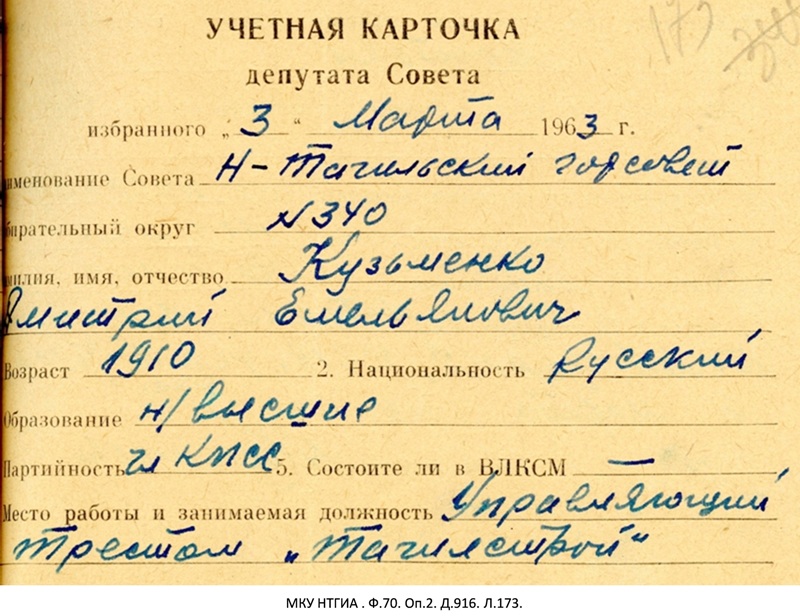 173
УЧЕТНАЯ КАРТОЧКА
депутата Совета
избранного „ 3 “ Марта 1963 г.
именование Совета Н-Тагильский горсовет
бирательный округ N 340
милия, имя, отчество Кузьменко
Дмитрий Емельянович
Возраст 1910 2. Национальность Русский
Образование н/высшее
Партийность чл КПСС 5. Состоите ли в ВЛКСМ —
Место работы и занимаемая должность Управляющий
трестом „Тагилстрой“
МКУ НТГИА . Ф.70. Оп.2. Д.916. Л.173.